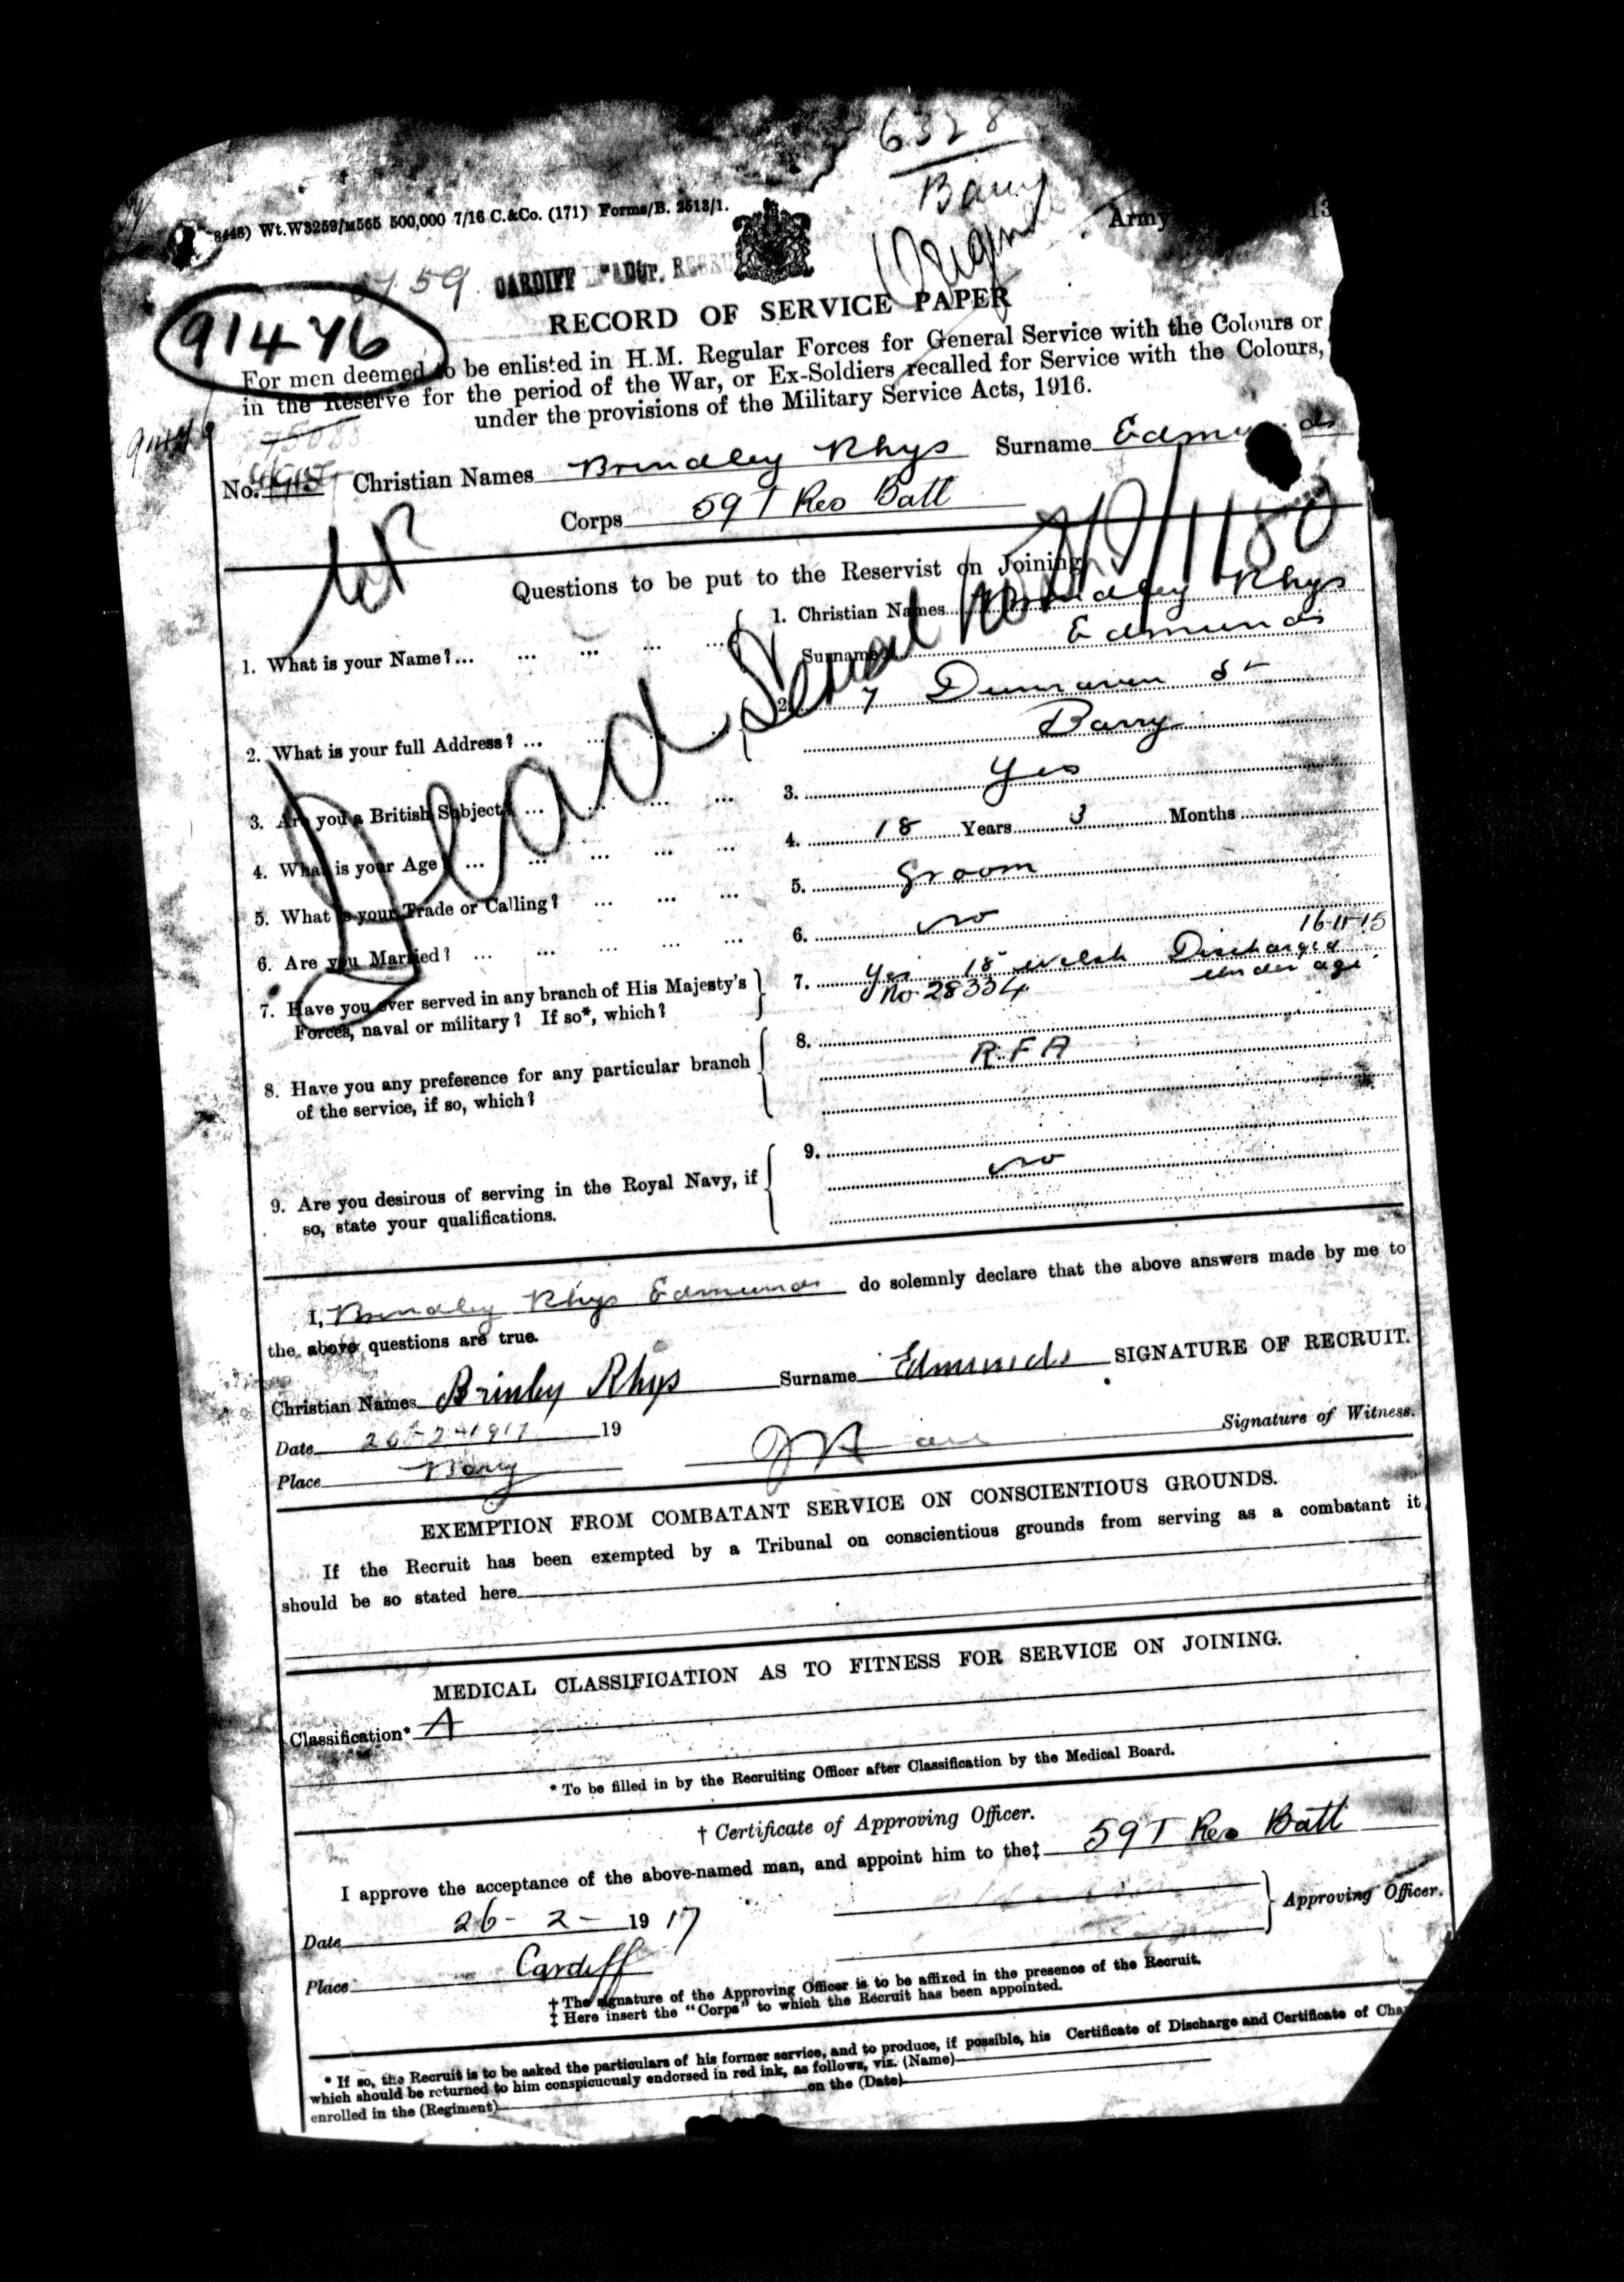 6328
Barry
8448) Wt.W3259/M565 500,000 7/16 C.&Co. (171) Forms/B. 2513/1.
Army
13
59
CARDIFF
Original
RECORD OF SERVICE PAPER
91476
For men deemed to be enlisted in H.M. Regular Forces for General Service with the Colours or
in the Reserve for the period of the War, or Ex-Soldiers recalled for Service with the Colours,
under the provisions of the Military Service Acts, 1916.
No. Christian Names Brindley Rhys Surname Edmunds
Corps 59 T Res Batt
Questions to be put to the Reservist on Joining.
Dead
1. What is your Name?... ... ... ... ... 1. Christian Names Brindley Rhys
Surname Edmunds
2. What is your full Address? ... ... 2. 7 Dunraven St
Barry
3. Are you a British Subject? ... ... ... ... 3. Yes
4. What is your Age? ... ... ... ... ... 4. 18 Years 3 Months
5. What is your Trade or Calling? ... ... ... 5. Groom
6. Are you Married? ... ... ... ... ... 6. no
16-11-15
7. Have you ever served in any branch of His Majesty's 7. Yes 18 Welsh Discharged
Forces, naval or military? If so*, which? No 28334 under age.
8. Have you any preference for any particular branch 8. R.F.A
of the service, if so, which?
9. Are you desirous of serving in the Royal Navy, if 9. no
so, state your qualifications.
I, Brindley Rhys Edmunds do solemnly declare that the above answers made by me to
the above questions are true.
Christian Names Brinley Rhys Surname Edmunds SIGNATURE OF RECRUIT.
Date 26-2-1917 19
Signature of Witness.
Place Barry
EXEMPTION FROM COMBATANT SERVICE ON CONSCIENTIOUS GROUNDS.
If the Recruit has been exempted by a Tribunal on conscientious grounds from serving as a combatant it
should be so stated here
MEDICAL CLASSIFICATION AS TO FITNESS FOR SERVICE ON JOINING.
Classification* A
* To be filled in by the Recruiting Officer after Classification by the Medical Board.
† Certificate of Approving Officer.
I approve the acceptance of the above-named man, and appoint him to the‡ 59 T Res Batt
Date 26-2-1917
Approving Officer.
Place Cardiff
† The signature of the Approving Officer is to be affixed in the presence of the Recruit.
‡ Here insert the "Corps" to which the Recruit has been appointed.
* If so, the Recruit is to be asked the particulars of his former service, and to produce, if possible, his Certificate of Discharge and Certificate of
which should be returned to him conspicuously endorsed in red ink, as follows, viz. (Name)
enrolled in the (Regiment) on the (Date)